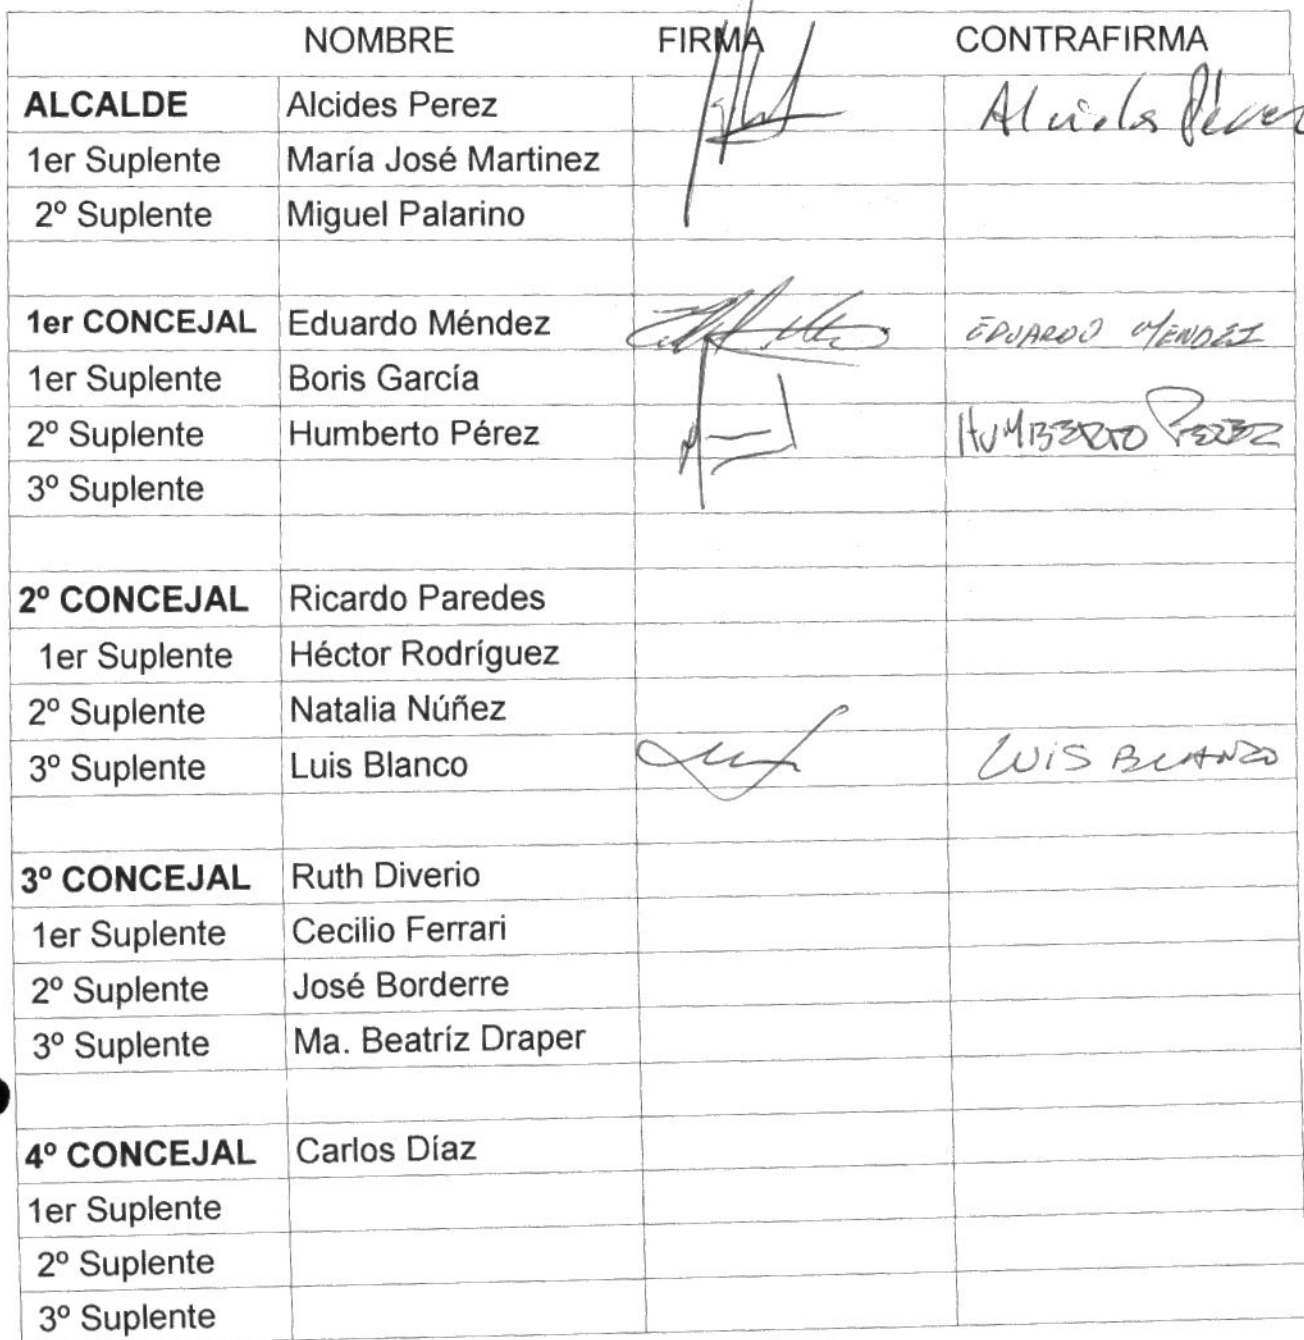 NOMBRE FIRMA CONTRAFIRMA
ALCALDE Alcides Perez Alcides Pérez
1er Suplente María José Martinez
2º Suplente Miguel Palarino
1er CONCEJAL Eduardo Méndez EDUARDO MENDEZ
1er Suplente Boris García
2º Suplente Humberto Pérez HUMBERTO PEREZ
3º Suplente
2º CONCEJAL Ricardo Paredes
1er Suplente Héctor Rodríguez
2º Suplente Natalia Núñez
3º Suplente Luis Blanco LUIS BLANCO
3º CONCEJAL Ruth Diverio
1er Suplente Cecilio Ferrari
2º Suplente José Borderre
3º Suplente Ma. Beatríz Draper
4º CONCEJAL Carlos Díaz
1er Suplente
2º Suplente
3º Suplente